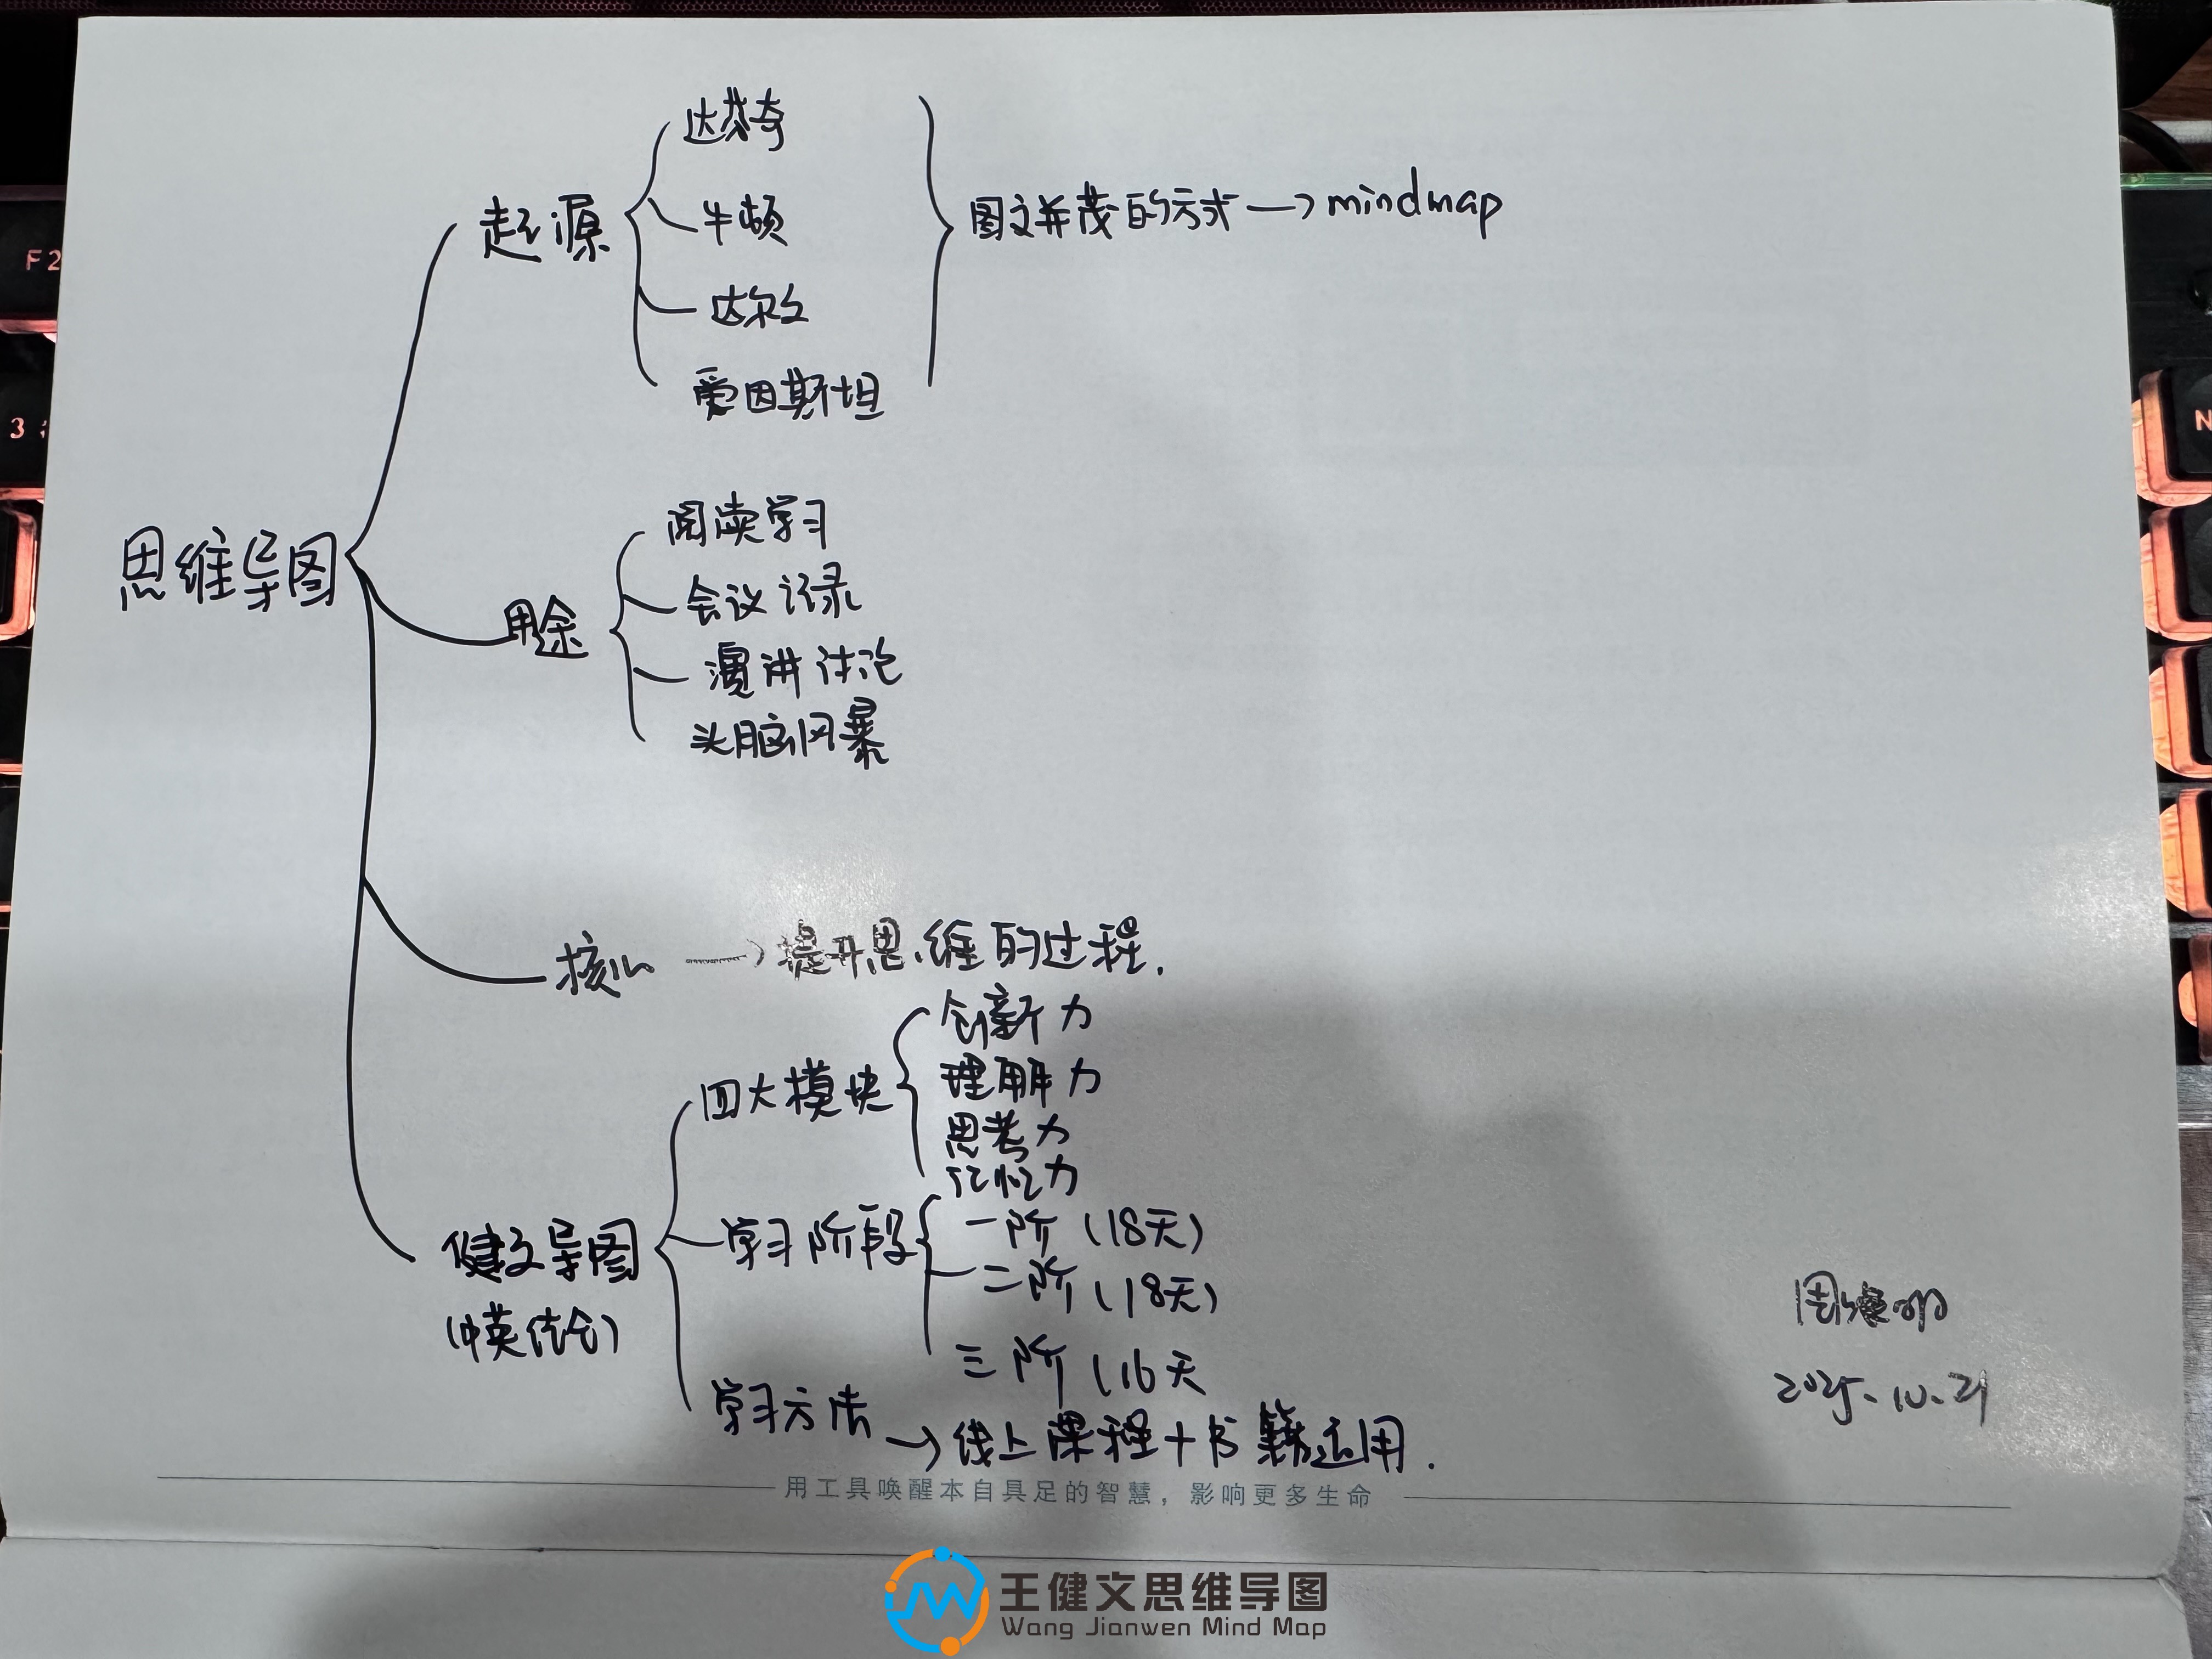 思维导图
起源
达芬奇
牛顿
达尔文
爱因斯坦
图文并茂的方式→mindmap
用途
阅读学习
会议记录
演讲讨论
头脑风暴
核心→提升思维的过程.
健文导图
(中英结合)
四大模块
创新力
理解力
思考力
记忆力
学习阶段
一阶(18天)
二阶(18天)
三阶(16天
学习方法→线上课程+书籍运用.
2025.10.21
用工具唤醒本自具足的智慧，影响更多生命
王健文思维导图
Wang Jianwen Mind Map
F2
3
N